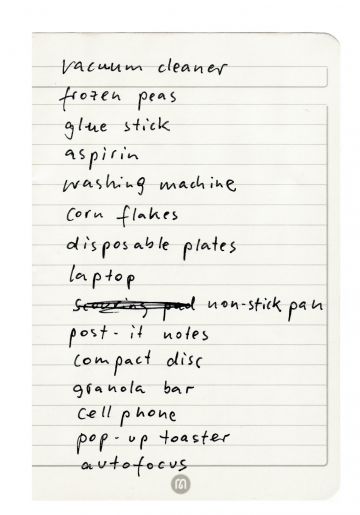 vacuum cleaner
frozen peas
glue stick
aspirin
washing machine
corn flakes
disposable plates
laptop
scouring pad non-stick pan
post-it notes
compact disc
granola bar
cell phone
pop-up toaster
autofocus